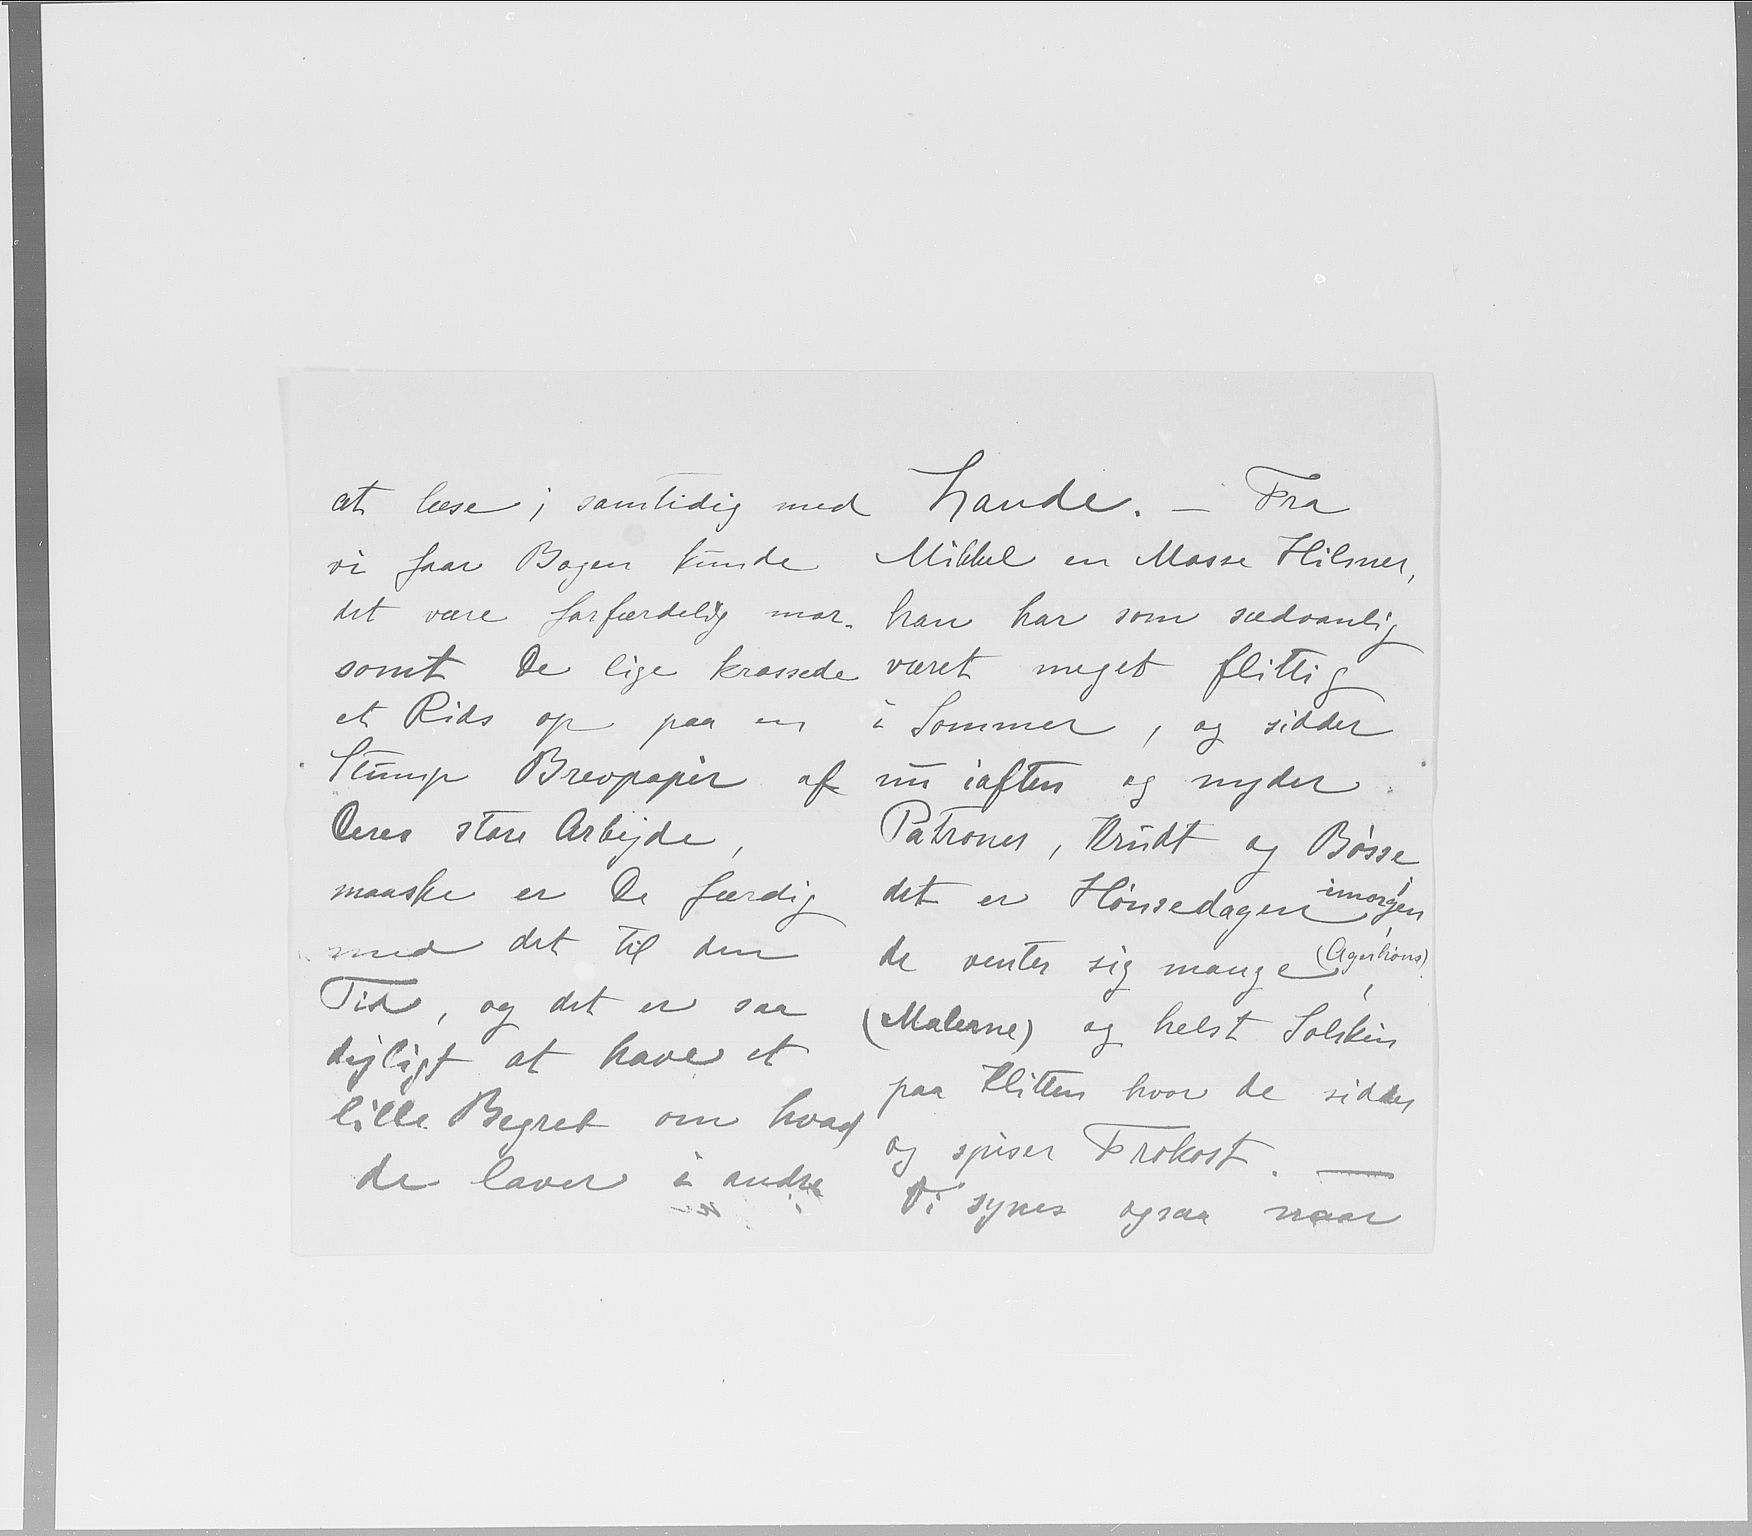 at læse i samtidig med
vi faar Bogen kunde
det være forfærdelig mor-
somt De lige krassede
et Rids op paa en
Stump Brevpapir af
Deres store Arbejde,
maaske er De færdig
med det til den
Tid, og det er saa
dejligt at have et
lille Begreb om hvad
de laver i andre
Lande. — Fra
Mikkel en Masse Hilsner,
han har som sædvanlig
været meget flittig
i Sommer, og sidder
nu iaften og nyder
Patroner, Krudt og Bøsse,
det er Hønsedagen imorgen,
de venter sig mange (Agerhøns),
(Malerne) og helst Solskin
paa Klitten hvor de sidder
og spiser Frokost. —
Vi synes ogsaa naar